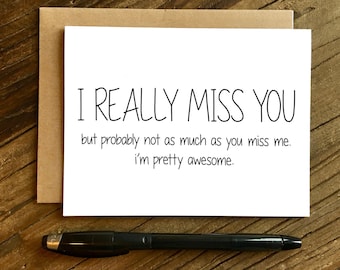 I REALLY MISS YOU
but probably not as much as you miss me.
i'm pretty awesome.